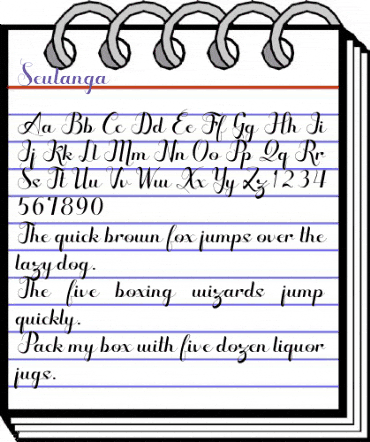 Seulanga
Aa Bb Cc Dd Ee Ff Gg Hh Ii
Jj Kk Ll Mm Nn Oo Pp Qq Rr
Ss Tt Uu Vv Ww Xx Yy Zz 1 2 3 4
5 6 7 8 9 0
The quick brown fox jumps over the
lazy dog.
The five boxing wizards jump
quickly.
Pack my box with five dozen liquor
jugs.